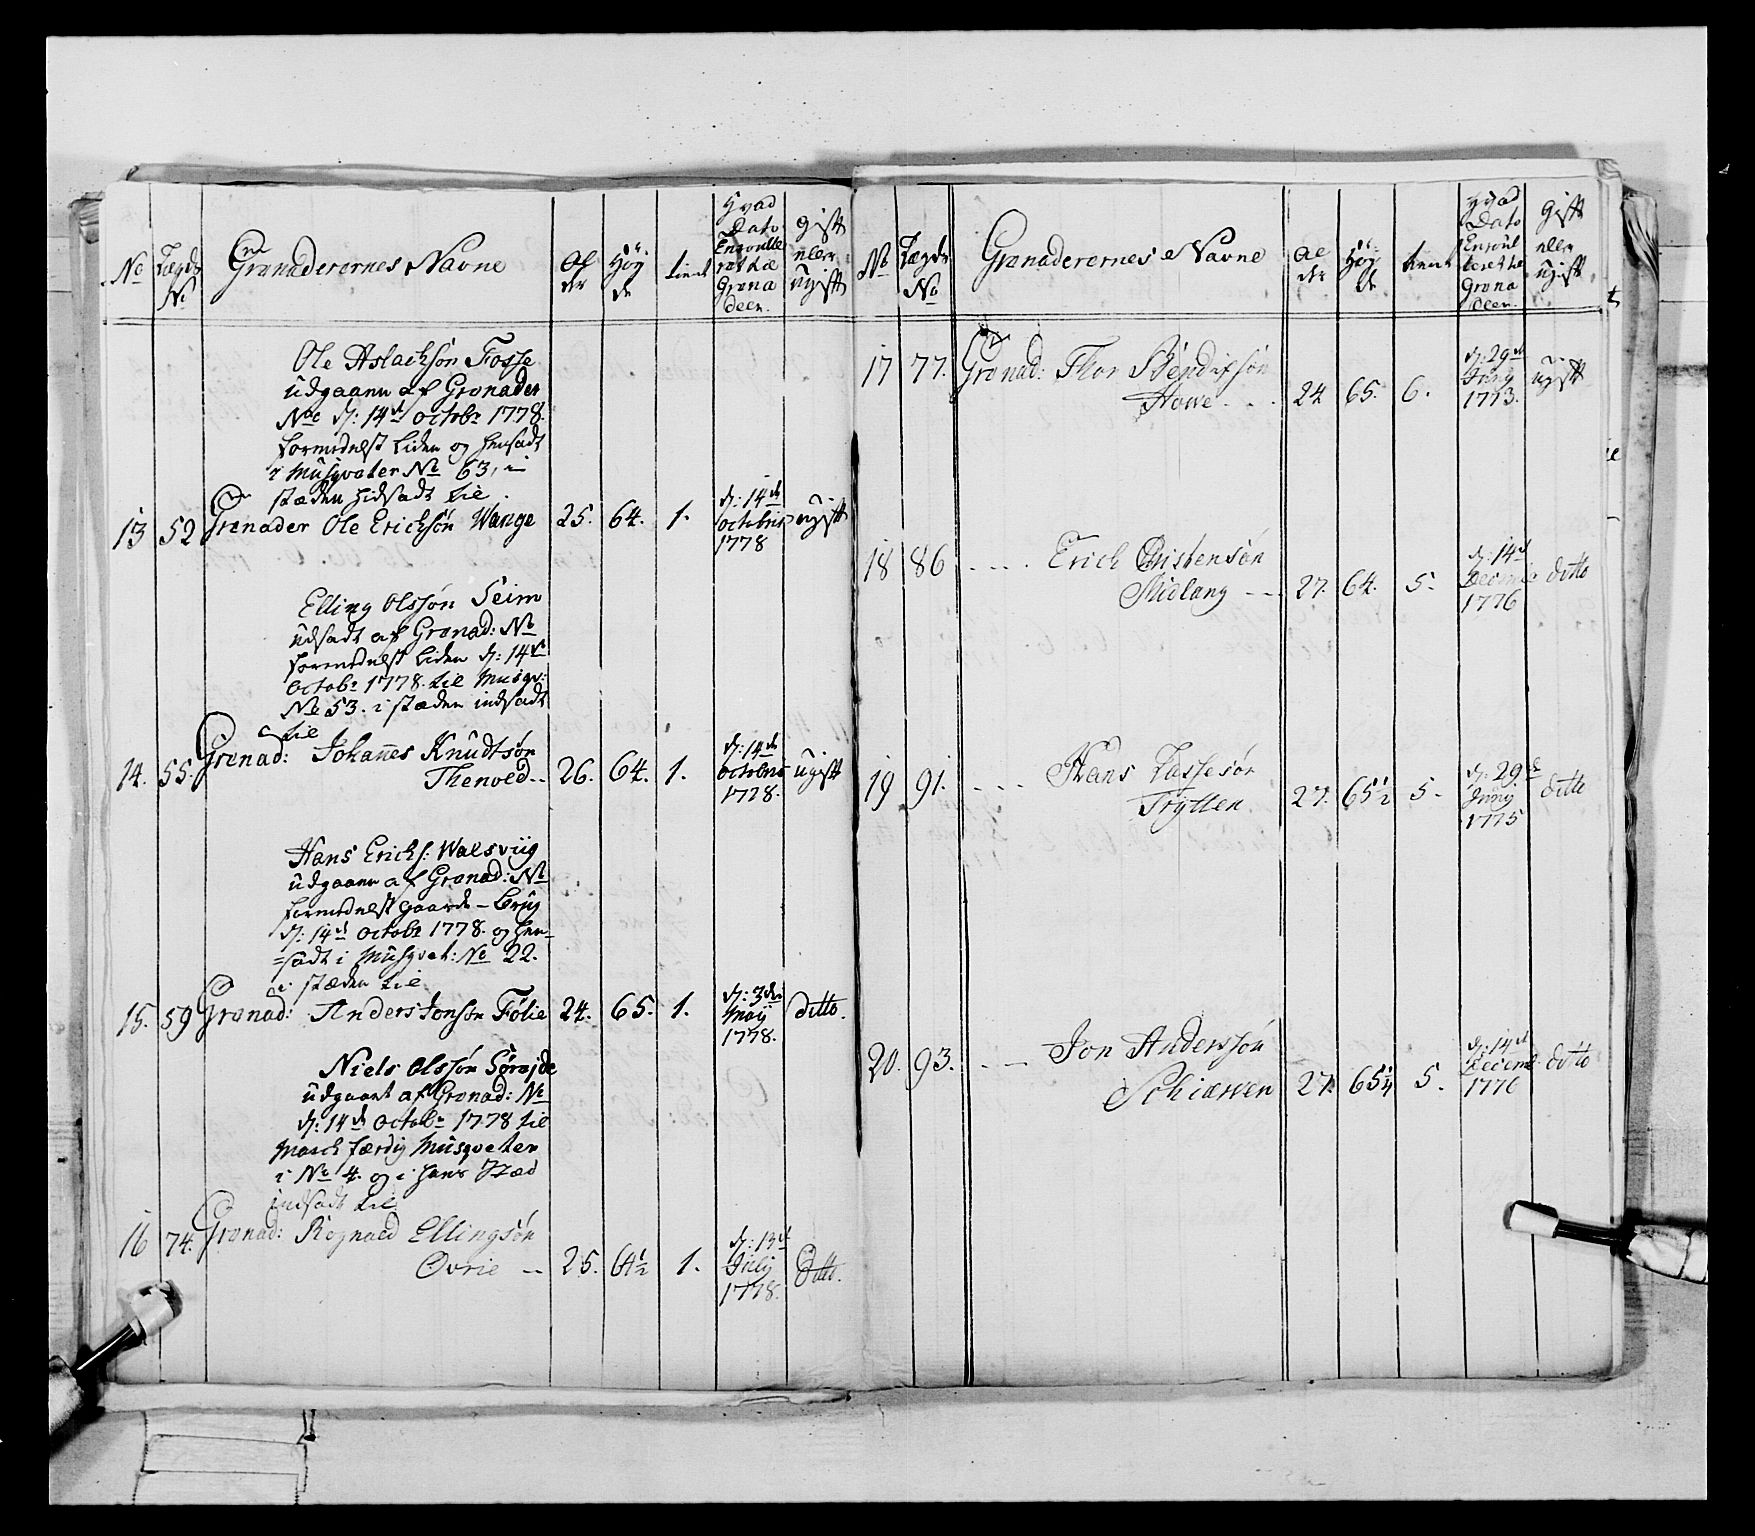 No
Lægds
No
Grænaderernes Navne
Al
der
Høy
de
tient
Hvad
Dato
Enroulle
ret til
Grena
deer.
Gift
eller
ugift
Ole Aslachsøn Fosse
udgaaen af Grenader
No d: 14de octobr 1778.
formedelst Liden og hensadt
i Musqveter No 63, i
stæden hidsadt til
13 52 Grenader Ole Erichsøn Wange 25. 64. 1. d: 14de octobris 1778 ugift
Elling Olssøn Seim
udsadt af Grenad: No
formedelst Liden d: 14de
octobr 1778. til Musqv:
No 53. i stæden indsadt
til
14. 55. Grenad: Johanes Knudtsøn
Thenold -- 26. 64. 1. d: 14de octobris 1778. ugift
Hans Erichs: Walsviig
udgaaen af Grenad: No
formedelst gaards-brug
d: 14de octobr 1778. og hen-
=sadt i Musqvet: No 22.
i stæden til
15. 59 Grenad: Anders Jonsøn Følie 24. 65. 1. d: 3de May 1778. Ditto.
Niels Olssøn Sørejde
udgaaet af Grenad: No
d: 14de octobr 1778 til
Masch færdig Musqveter
i No 4. og i hans Stæd
indsadt til
16 74. Grenad: Rognald Ellingsøn
Ovrie -- 25. 64½ 1. d: 13de July 1778. Ditto.
No
Lægds
No
Grænaderernes Navne
Al
der
Høy
de
tient
Hvad
Dato
Enroul
leret til
Grena
deer.
Gift
eller
ugift
17 77. Grenad: Thor Bendixsøn
Howe . . 24 65. 6. d: 29de Juny 1773. ugift
18 86 .... Erich Christensøn
Midlang -- 27. 64. 5. d: 14de Decembr 1776 ditto
19 91. .... Hans Lassesøn
Trytten. 27. 65½ 5. d: 29de Juny 1775 ditto
20. 93. .. -- Jon Anderssøn
Schiærven 27. 65¼ 5. d: 14de Decemb: 1776 ditto